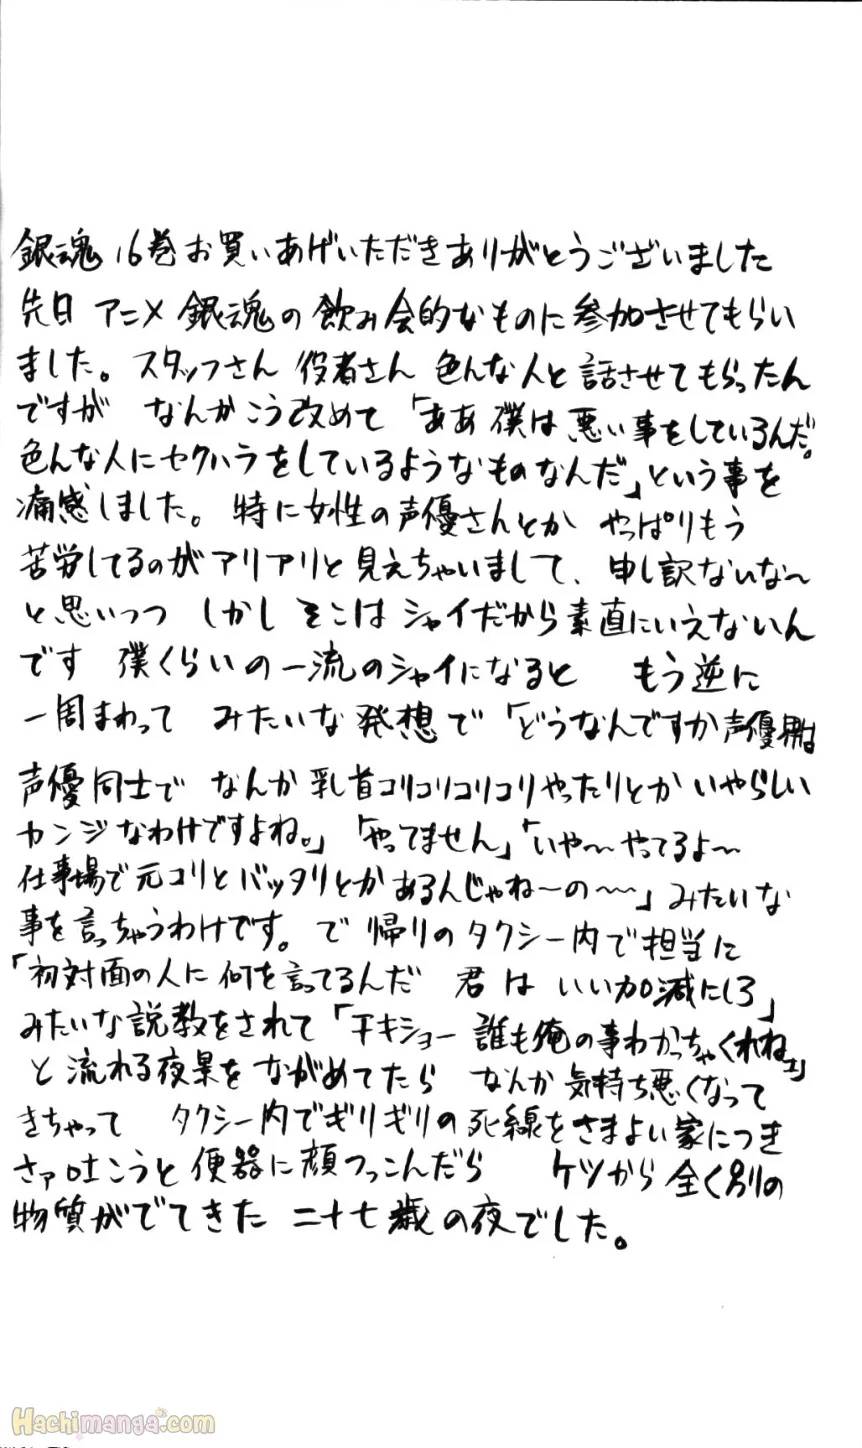 銀魂 16巻お買いあげいただきありがとうございました
先日 アニメ 銀魂の飲み会的なものに参加させてもらい
ました。スタッフさん 役者さん 色んな人と話させてもらったん
ですが なんかこう改めて「ああ僕は悪い事をしているんだ。
色んな人にセクハラをしているようなものなんだ」という事を
痛感しました。特に女性の声優さんとか やっぱりもう
苦労してるのがアリアリと見えちゃいまして、申し訳ないな〜
と思いつつ しかし そこは シャイだから素直にいえないん
です 僕くらいの一流のシャイになると もう逆に
一周まわって みたいな発想で「どうなんですか声優界は
声優同士で なんか乳首コリコリコリコリやったりとか いやらしい
カンジなわけですよね。」「やってません」「いや〜やってるよ〜
仕事場で元コリとバッタリとかあるんじゃね〜の〜〜」みたいな
事を言っちゃうわけです。で 帰りのタクシー内で担当に
「初対面の人に何を言ってるんだ 君は いい加減にしろ」
みたいな説教をされて「チキショー誰も俺の事わかっちゃくれねェ」
と流れる夜景をながめてたら なんか気持ち悪くなって
きちゃって タクシー内でギリギリの死線をさまよい家につき
さァ吐こうと便器に顔つっこんだら ケツから全く別の
物質がでてきた 二十七歳の夜でした。
Hachimanga.com